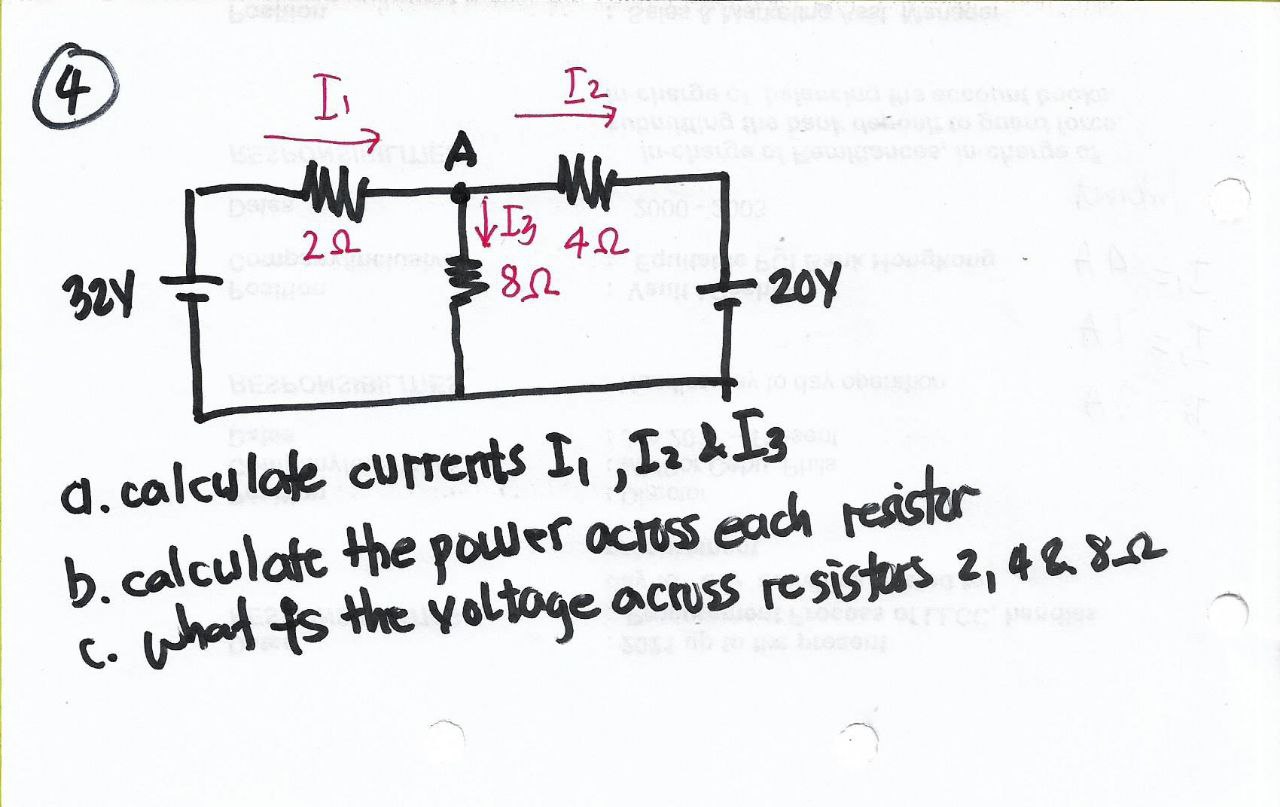 4
I1
I2
A
I3
2Ω
4Ω
8Ω
32V
20V
a. calculate currents I1, I2 & I3
b. calculate the power across each resistor
c. what is the voltage across resistors 2, 4 & 8Ω